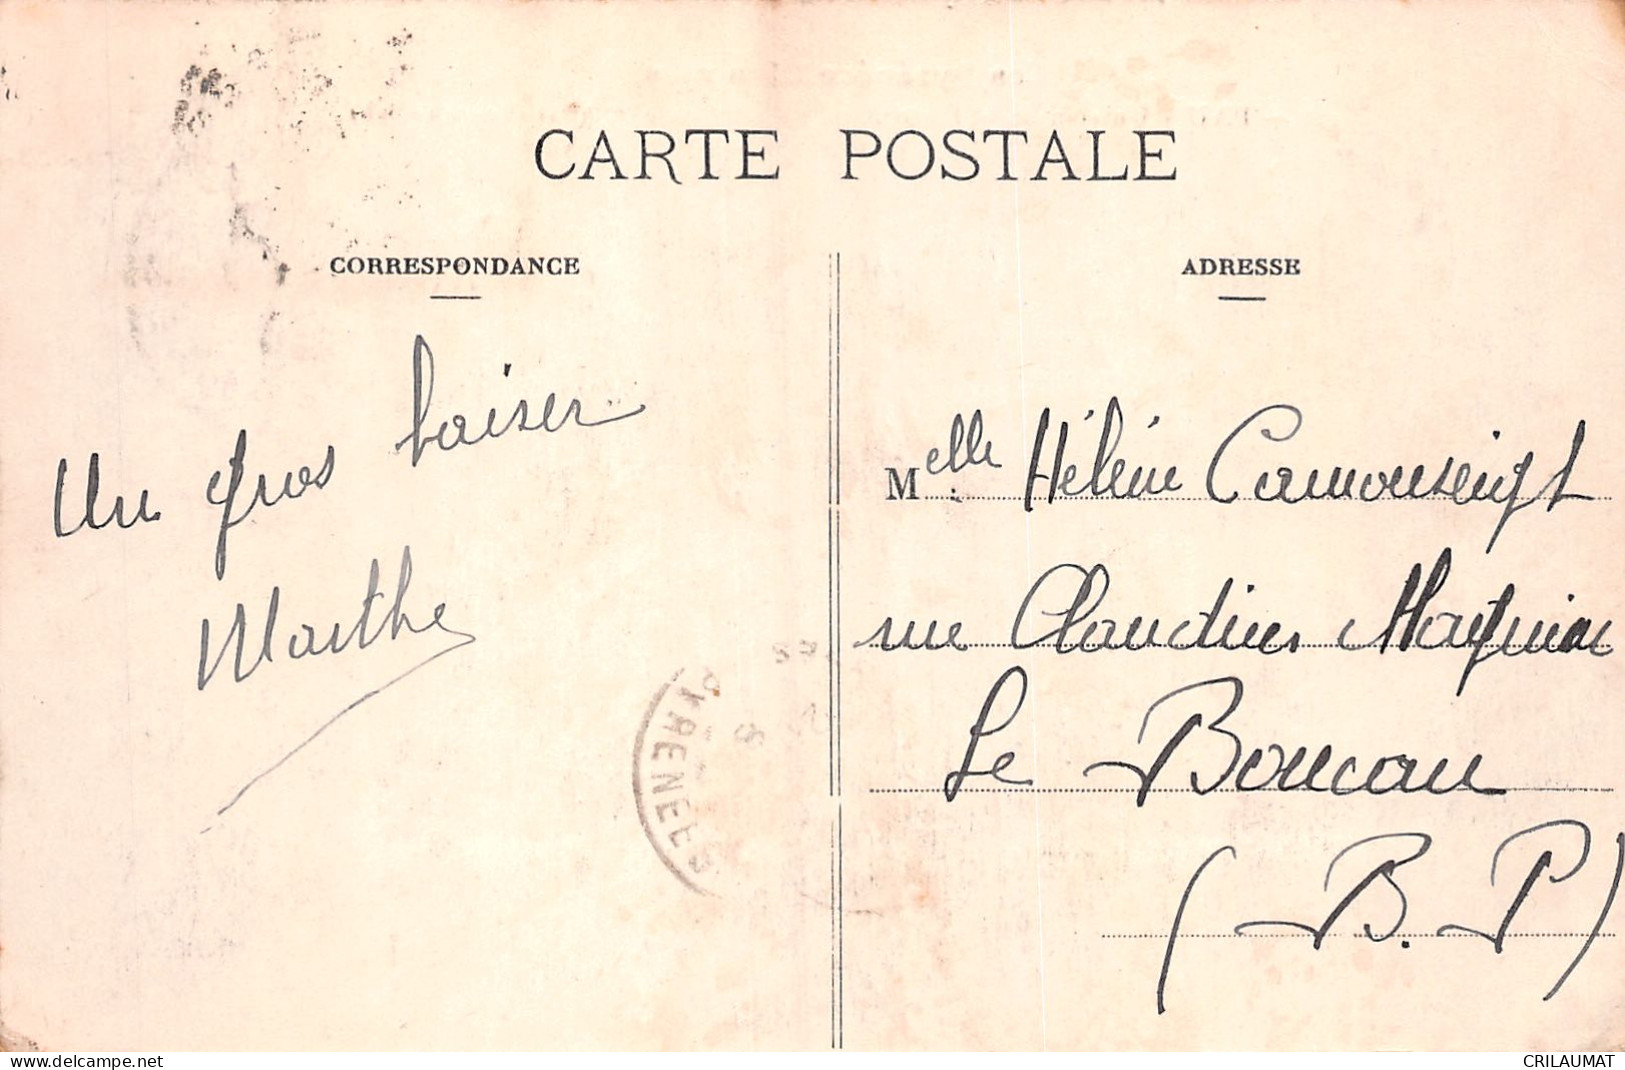 CARTE POSTALE
CORRESPONDANCE
ADRESSE
Un gros baiser
Marthe
Melle Hélène Camouseigt
rue Claudius Magnin
Le Boucau
(B. P)
PYRENEES
www.delcampe.net
CRILAUMAT